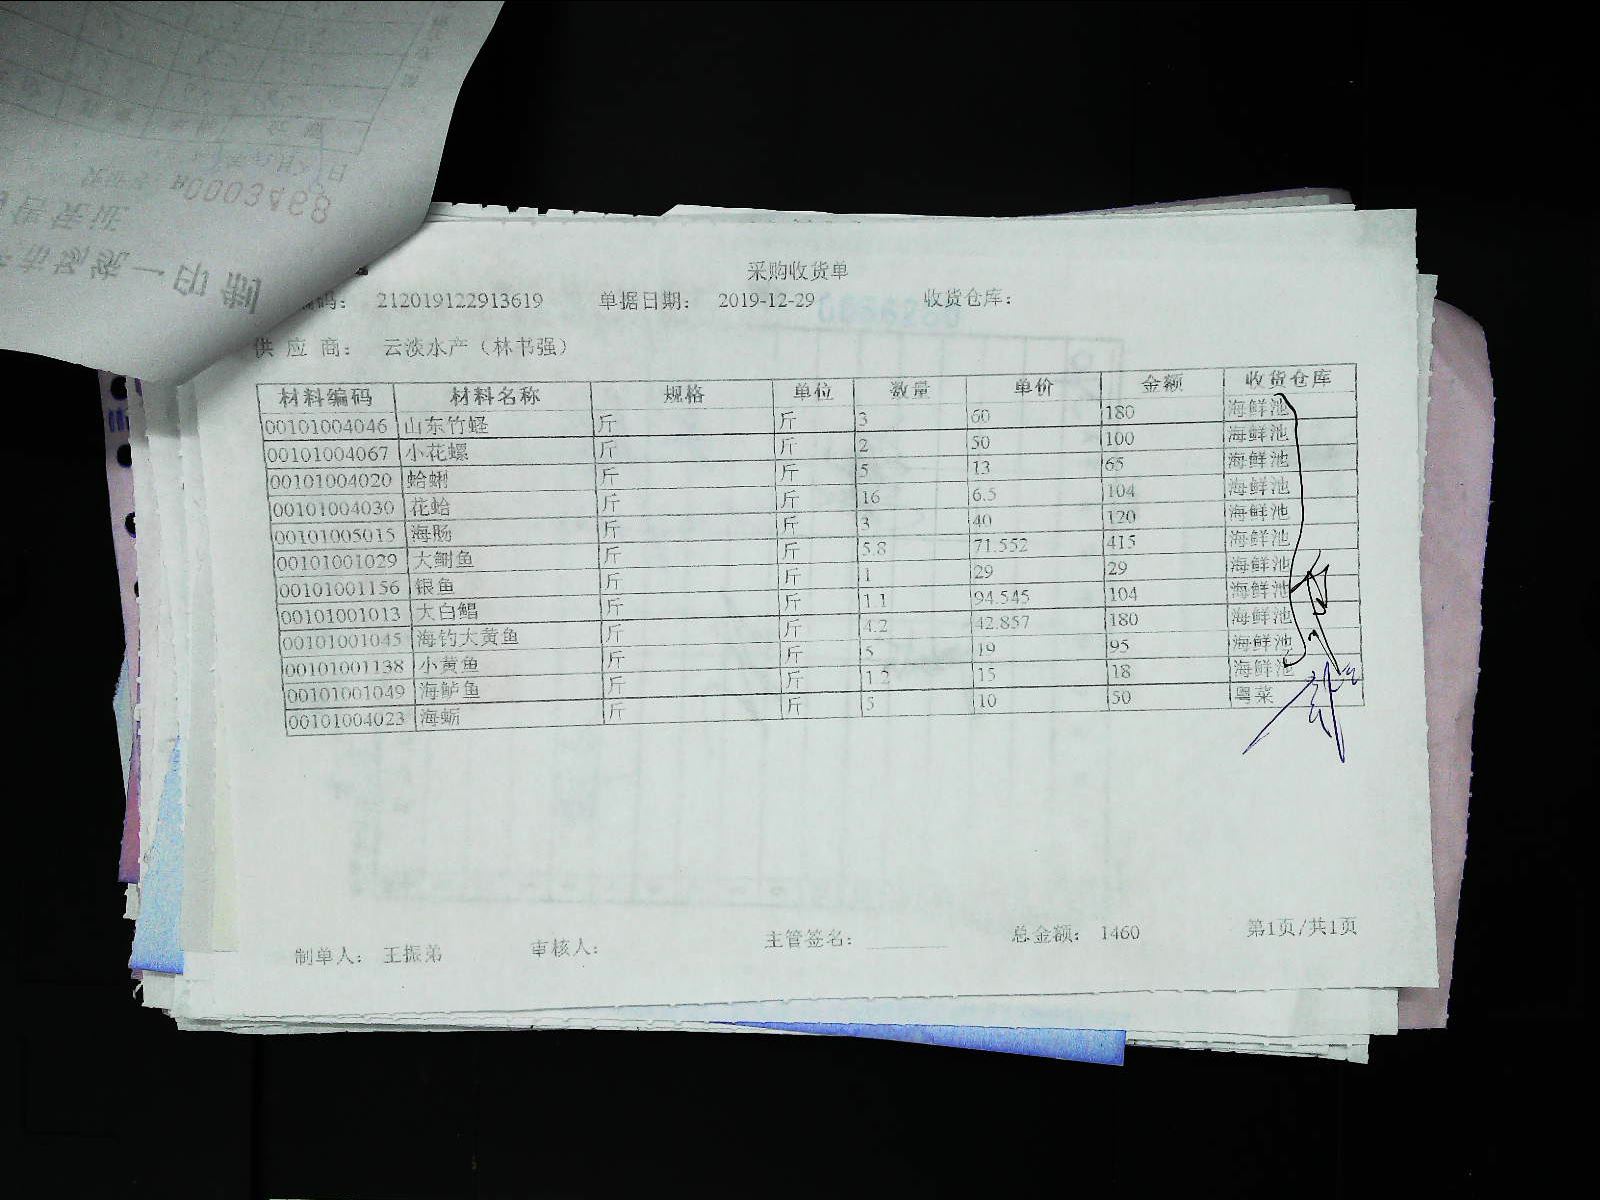 采购收货单
编码： 212019122913619 单据日期： 2019-12-29 收货仓库：
供 应 商： 云淡水产（林书强）
材料编码 材料名称 规格 单位 数量 单价 金额 收货仓库
00101004046 山东竹蛏 斤 斤 3 60 180 海鲜池
00101004067 小花螺 斤 斤 2 50 100 海鲜池
00101004020 蛤蜊 斤 斤 5 13 65 海鲜池
00101004030 花蛤 斤 斤 16 6.5 104 海鲜池
00101005015 海肠 斤 斤 3 40 120 海鲜池
00101001029 大鲥鱼 斤 斤 5.8 71.552 415 海鲜池
00101001156 银鱼 斤 斤 1 29 29 海鲜池
00101001013 大白鲳 斤 斤 1.1 94.545 104 海鲜池
00101001045 海钓大黄鱼 斤 斤 4.2 42.857 180 海鲜池
00101001138 小黄鱼 斤 斤 5 19 95 海鲜池
00101001049 海鲈鱼 斤 斤 1.2 15 18 海鲜池
00101004023 海蛎 斤 斤 5 10 50 粤菜
制单人： 王振弟 审核人： 主管签名： 总金额： 1460 第1页/共1页